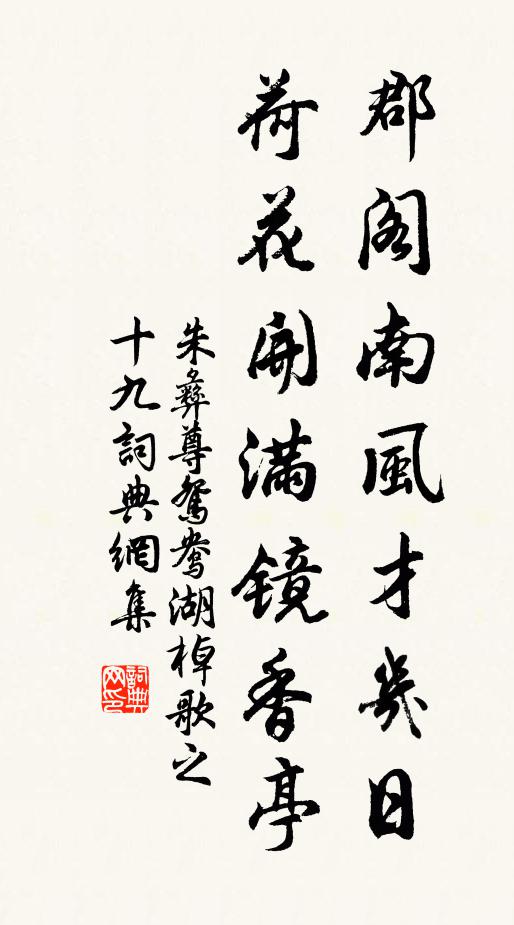 郡阁南風才幾日
荷花開滿镜香亭
朱彝尊鴛鴦湖棹歌之
十九詞典網集
詞典网印